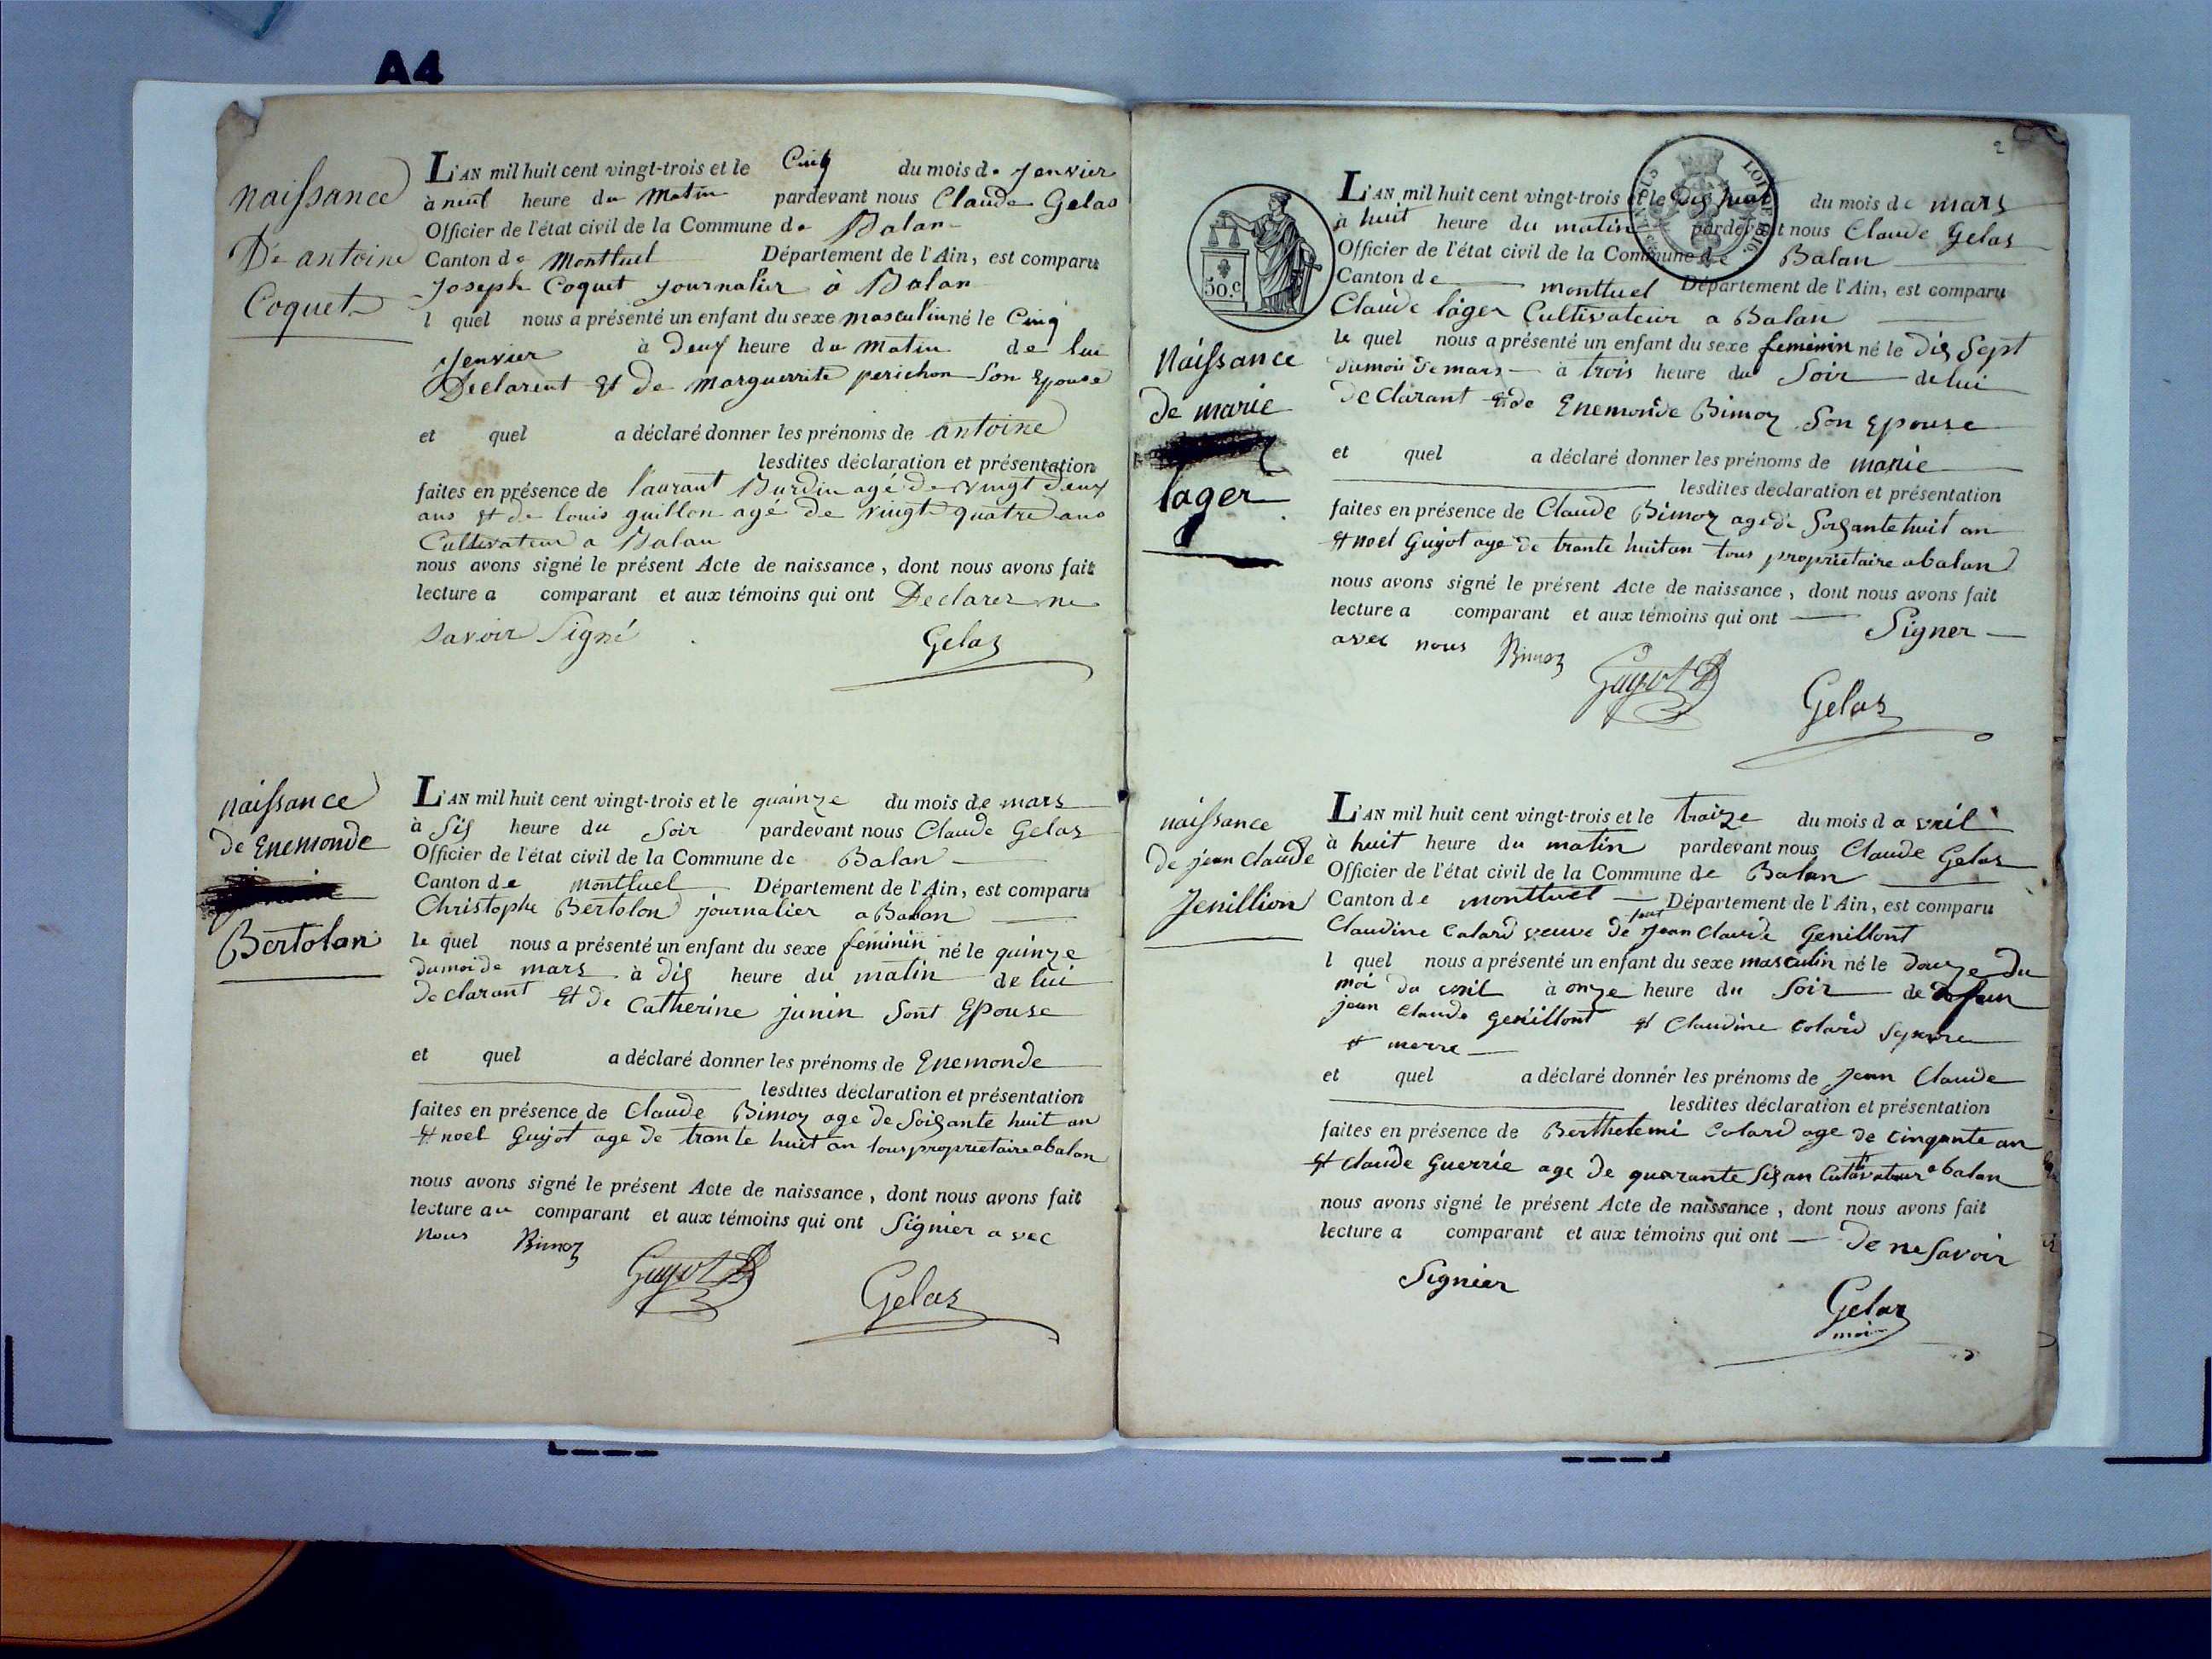 A4
naissance
De antoine
Coquet
L'AN mil huit cent vingt-trois et le Cinq du mois de Jenvier
à neuf heure du Matin pardevant nous Claude Gelas
Officier de l'état civil de la Commune de Balan
Canton de Montluel Département de l'Ain, est comparu
Joseph Coquet journalier à Balan
l quel nous a présenté un enfant du sexe masculin né le Cinq
Jenvier à Deux heure du Matin de lui
Declarent et de Marguerrite perichon Son Epouse
et quel a déclaré donner les prénoms de antoine
lesdites déclaration et présentation
faites en présence de laurant Burdin agé de vingt deux
ans et de louis guillon agé de vingt quatre ans
Cultivateur a Balan
nous avons signé le présent Acte de naissance, dont nous avons fait
lecture a comparant et aux témoins qui ont Declarez ne
Savoir Signé
Gelas
naissance
de Enemonde
Bertolan
L'AN mil huit cent vingt-trois et le quainze du mois de mars
à Sis heure du Soir pardevant nous Claude Gelas
Officier de l'état civil de la Commune de Balan
Canton de Montluel Département de l'Ain, est comparu
Christophe Bertolon journalier a Balan
le quel nous a présenté un enfant du sexe feminin né le quinze
du moi de mars à dis heure du matin de lui
declarant et de Catherine junin Sont Epouse
et quel a déclaré donner les prénoms de Enemonde
lesdites déclaration et présentation
faites en présence de Claude Bimoz age de Soisante huit an
et noel Guyot age de trante huit an tous proprietaire a balan
nous avons signé le présent Acte de naissance, dont nous avons fait
lecture au comparant et aux témoins qui ont Signier avec
nous Bimoz
Guyot
Gelas
2
50.c
LOI DE 1816
Naissance
de marie
lager
L'AN mil huit cent vingt-trois et le Dis huit du mois de mars
à huit heure du matin pardevant nous Claude Gelas
Officier de l'état civil de la Commune de Balan
Canton de montluel Département de l'Ain, est comparu
Claude lager Cultivateur a Balan
le quel nous a présenté un enfant du sexe feminin né le Dis Sept
du moi de mars à trois heure du Soir de lui
de Clarant et de Enemonde Bimoz Son Epouse
et quel a déclaré donner les prénoms de marie
lesdites declaration et présentation
faites en présence de Claude Bimoz age de Soisante huit an
et noel Guyot age de trante huit an tous proprietaire a balan
nous avons signé le présent Acte de naissance, dont nous avons fait
lecture a comparant et aux témoins qui ont Signer
avec nous Bimoz
Guyot
Gelas
naissance
de jean Claude
Jenillion
L'AN mil huit cent vingt-trois et le traize du mois d avril
à huit heure du matin pardevant nous Claude Gelas
Officier de l'état civil de la Commune de Balan
Canton de montluel Département de l'Ain, est comparu
Claudine Colard veuve de Jean Claude Genillont
l quel nous a présenté un enfant du sexe masculin né le Douze du
moi da vril à onze heure du Soir de
jean Claude genillont et Claudine Colard
et merre
et quel a déclaré donnér les prénoms de Jean Claude
lesdites déclaration et présentation
faites en présence de Berthelemi Colard age de cinquante an
et Claude Guerrie age de quarante Sis an Cultivateur a balan
nous avons signé le présent Acte de naissance, dont nous avons fait
lecture a comparant et aux témoins qui ont de ne Savoir
Signier
Gelas